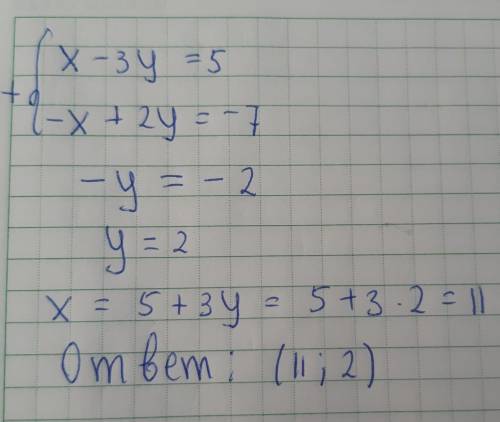 x - 3y = 5
+
-x + 2y = -7
-y = -2
y = 2
x = 5 + 3y = 5 + 3 · 2 = 11
Ответ: (11; 2)